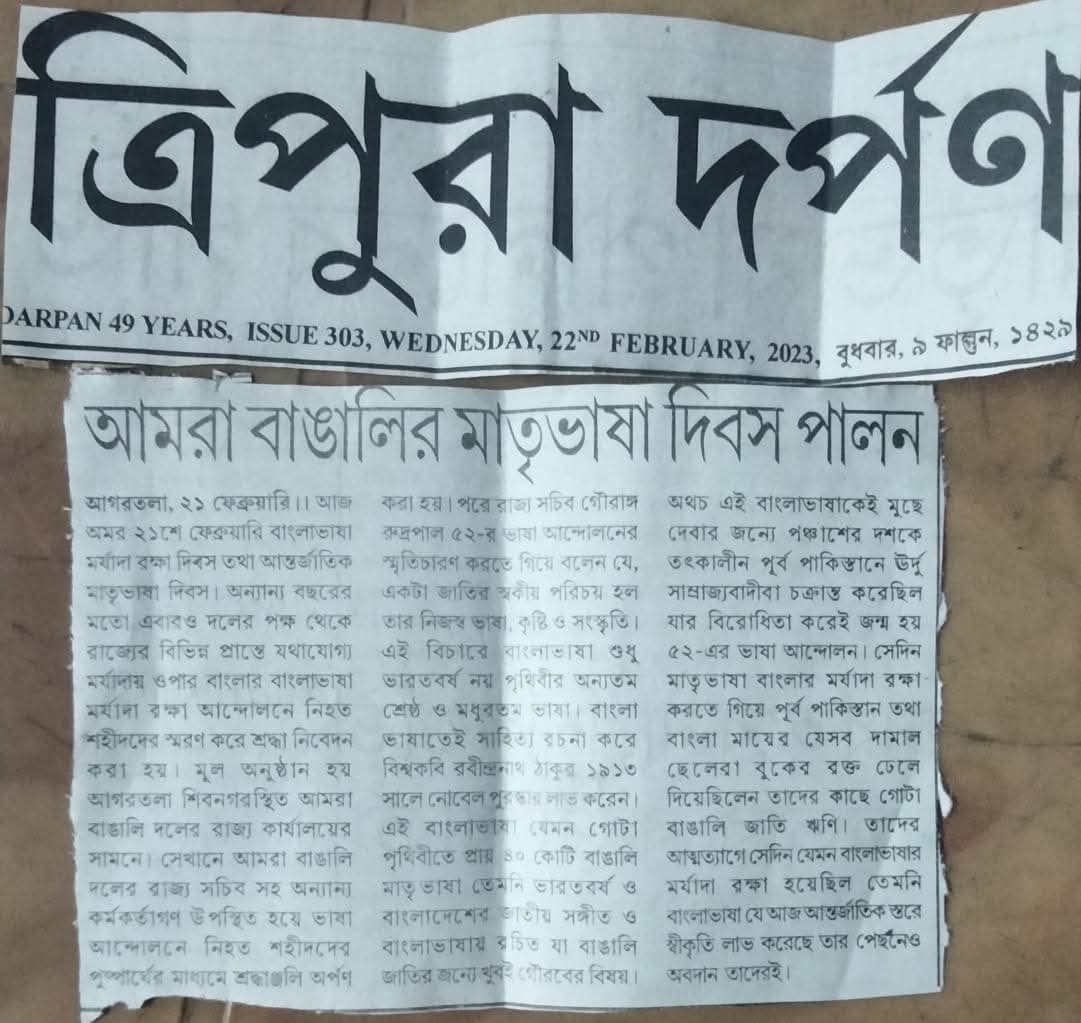 ত্রিপুরা দর্পণ
DARPAN 49 YEARS, ISSUE 303, WEDNESDAY, 22ND FEBRUARY, 2023, বুধবার, ৯ ফাল্গুন, ১৪২৯
আমরা বাঙালির মাতৃভাষা দিবস পালন
আগরতলা, ২১ ফেব্রুয়ারি।। আজ
অমর ২১শে ফেব্রুয়ারি বাংলাভাষা
মর্যাদা রক্ষা দিবস তথা আন্তর্জাতিক
মাতৃভাষা দিবস। অন্যান্য বছরের
মতো এবারও দলের পক্ষ থেকে
রাজ্যের বিভিন্ন প্রান্তে যথাযোগ্য
মর্যাদায় ওপার বাংলার বাংলাভাষা
মর্যাদা রক্ষা আন্দোলনে নিহত
শহীদদের স্মরণ করে শ্রদ্ধা নিবেদন
করা হয়। মূল অনুষ্ঠান হয়
আগরতলা শিবনগরস্থিত আমরা
বাঙালি দলের রাজ্য কার্যালয়ের
সামনে। সেখানে আমরা বাঙালি
দলের রাজ্য সচিব সহ অন্যান্য
কর্মকর্তাগণ উপস্থিত হয়ে ভাষা
আন্দোলনে নিহত শহীদদের
পুষ্পার্ঘের মাধ্যমে শ্রদ্ধাঞ্জলি অর্পণ
করা হয়। পরে রাজ্য সচিব গৌরাঙ্গ
রুদ্রপাল ৫২-র ভাষা আন্দোলনের
স্মৃতিচারণ করতে গিয়ে বলেন যে,
একটা জাতির স্বকীয় পরিচয় হল
তার নিজস্ব ভাষা, কৃষ্টি ও সংস্কৃতি।
এই বিচারে বাংলাভাষা শুধু
ভারতবর্ষ নয় পৃথিবীর অন্যতম
শ্রেষ্ঠ ও মধুরতম ভাষা। বাংলা
ভাষাতেই সাহিত্য রচনা করে
বিশ্বকবি রবীন্দ্রনাথ ঠাকুর ১৯১৩
সালে নোবেল পুরস্কার লাভ করেন।
এই বাংলাভাষা যেমন গোটা
পৃথিবীতে প্রায় ৪০ কোটি বাঙালি
মাতৃভাষা তেমনি ভারতবর্ষ ও
বাংলাদেশের জাতীয় সঙ্গীত ও
বাংলাভাষায় রচিত যা বাঙালি
জাতির জন্যে খুবই গৌরবের বিষয়।
অথচ এই বাংলাভাষাকেই মুছে
দেবার জন্যে পঞ্চাশের দশকে
তৎকালীন পূর্ব পাকিস্তানে ঊর্দু
সাম্রাজ্যবাদীরা চক্রান্ত করেছিল
যার বিরোধিতা করেই জন্ম হয়
৫২-এর ভাষা আন্দোলন। সেদিন
মাতৃভাষা বাংলার মর্যাদা রক্ষা
করতে গিয়ে পূর্ব পাকিস্তান তথা
বাংলা মায়ের যেসব দামাল
ছেলেরা বুকের রক্ত ঢেলে
দিয়েছিলেন তাদের কাছে গোটা
বাঙালি জাতি ঋণি। তাদের
আত্মত্যাগে সেদিন যেমন বাংলাভাষার
মর্যাদা রক্ষা হয়েছিল তেমনি
বাংলাভাষা যে আজ আন্তর্জাতিক স্তরে
স্বীকৃতি লাভ করেছে তার পেছনেও
অবদান তাদেরই।